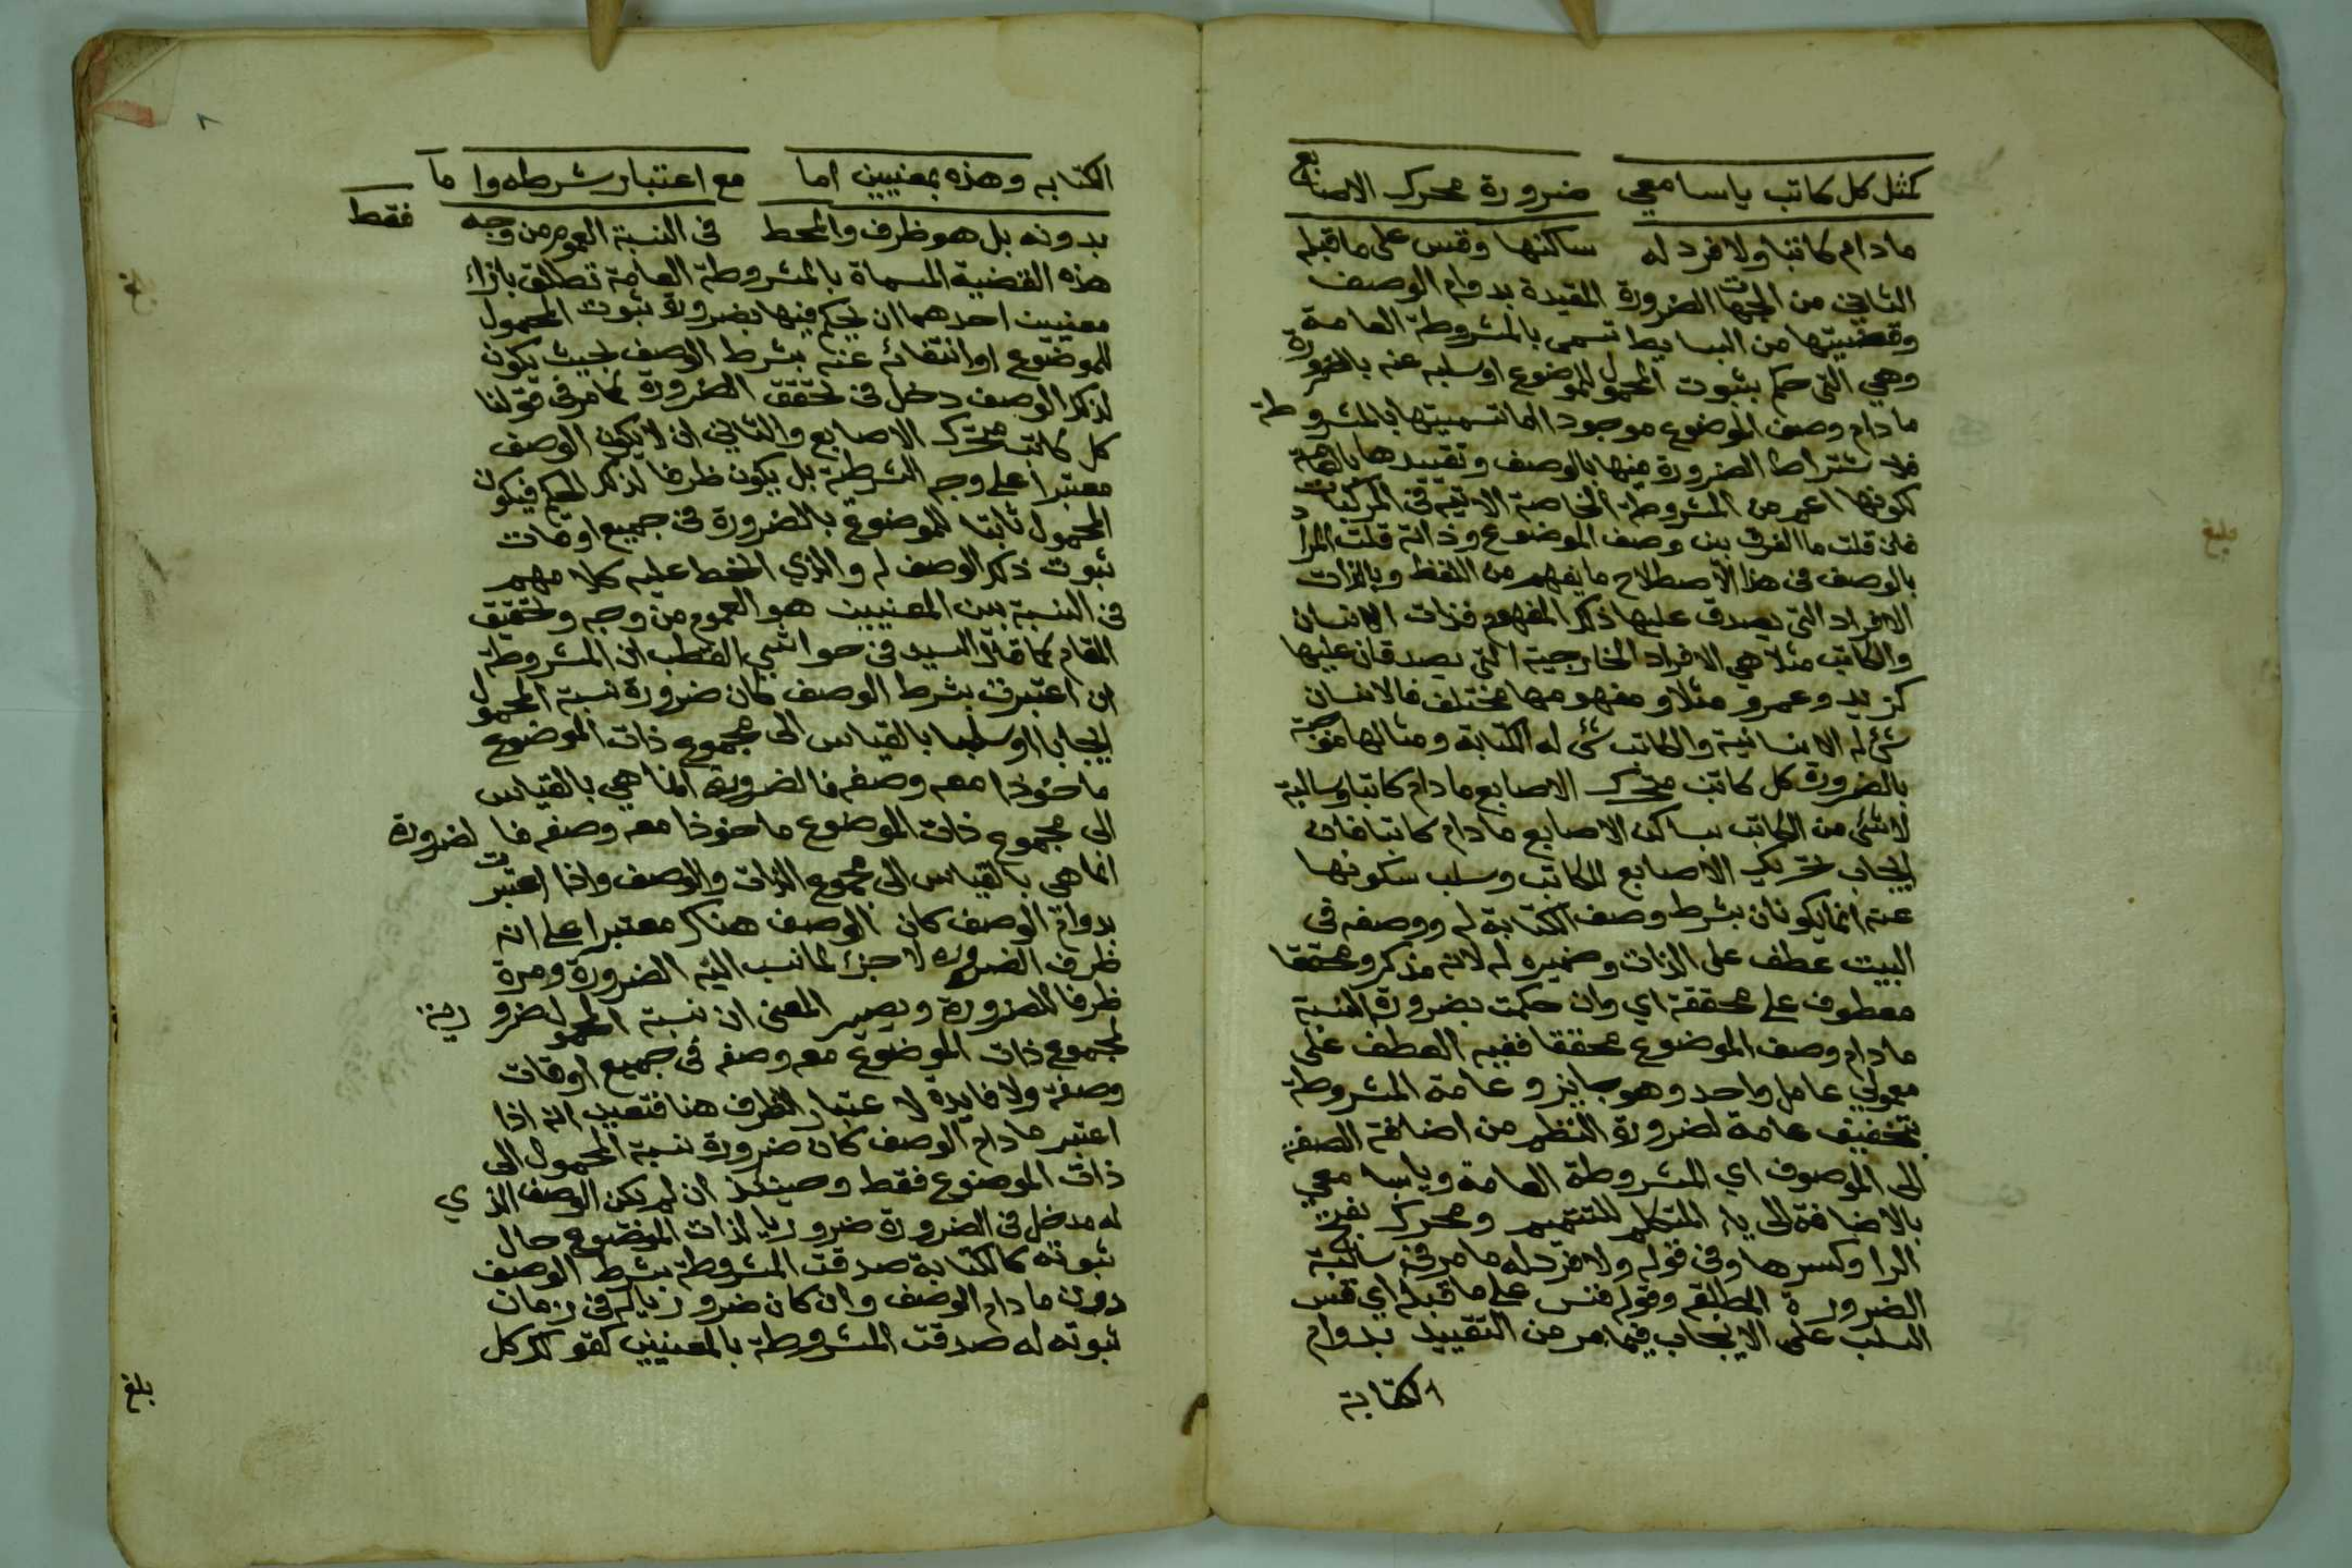 كمثل كل كاتب ياسامعي ضرورة محرك الاصابع
مادام كاتبا ولا فرد له ساكنها وقس على ماقبله
الثاني من الجهات الضرورة المقيدة بدوام الوصف
وقضيتها من البسايط تسمى بالمشروطة العامة
وهي التي حكم بثبوت المحمول للموضوع اوسلبه عنه بالضرورة
مادام وصف الموضوع موجودا اما تسميتها بالمشروطة
فلاشتراط الضرورة فيها بالوصف وتقييدها بالعامة
لكونها اعم من المشروطة الخاصة الاتية في المركبات
فان قلت ما الفرق بين وصف الموضوع وذاته قلت المراد
بالوصف في هذا الاصطلاح ما يفهم من اللفظ وبالذات
الافراد التي يصدق عليها ذلك المفهوم فذات الانسان
والكاتب مثلا هي الافراد الخارجية التي يصدقان عليها
كزيد وعمرو مثلا ومفهومها مختلف فالانسان
شئ له الانسانية والكاتب شئ له الكتابة ومثالها موجبة
بالضرورة كل كاتب متحرك الاصابع مادام كاتبا وسالبة
لاشئ من الكاتب بساكن الاصابع مادام كاتبا فان
ايجاب تحريك الاصابع للكاتب وسلب سكونها
عنه انما يكونان بشرط وصف الكتابة له ووصفه في
البيت عطف على الذات وضميره له لانه مذكر ومحققا
معطوف على محققة اي وان حكمت بضرورة النسبة
مادام وصف الموضوع محققا ففيه العطف على
معمولي عامل واحد وهو جايز وعامة المشروطة
بتخفيف عامة لضرورة النظم من اضافة الصفة
الى الموصوف اي المشروطة العامة وياسامعي
بالاضافة الى ياء المتكلم للتتميم ومحرك بفتح
الرا وكسرها وفي قوله ولا فرد له مامر في سالبة
الضرورة المطلقه وقوله فقس على ماقبله اي قس
السلب على الايجاب فيما مر من التقييد بدوام
الكتابة
الكتابه وهذه بمعنيين اما مع اعتبار شرطه واما
بدونه بل هو ظرف والمحط في النسبة العموم من وجه فقط
هذه القضية المسماة بالمشروطة العامة تطلق بازاء
معنيين احدهما ان يحكم فيها بضرورة ثبوت المحمول
للموضوع او انتفائه عنه بشرط الوصف بحيث يكون
لذلك الوصف دخل في تحقق الضرورة كمامر في قولنا
كل كاتب متحرك الاصابع والثاني ان لا يكون الوصف
معتبرا على وجه الشرطية بل يكون ظرفا لذلك الحكم فيكون
المحمول ثابتا للموضوع بالضرورة في جميع اوقات
ثبوت ذلك الوصف له والذي انحط عليه كلامهم
في النسبة بين المعنيين هو العموم من وجه وتحقيق
المقام كما قال السيد في حواشي القطب ان المشروطة
ان اعتبرت بشرط الوصف كان ضرورة نسبة المحمول
ايجابا او سلبا بالقياس الى مجموع ذات الموضوع
ماخوذا معه وصفه فالضرورة انما هي بالقياس
الى مجموع ذات الموضوع ماخوذا معه وصفه فا لضرورة
انما هي بالقياس الى مجموع الذات والوصف واذا اعتبرت
بدوام الوصف كان الوصف هناك معتبرا على انه
ظرف الضروره لا جزء لمانسب اليه الضرورة ومرة
ظرفا للضرورة ويصير المعنى ان نسبة المحمول ضرورية
لمجموع ذات الموضوع مع وصفه في جميع اوقات
وصفه ولا فايدة لاعتبار الظرف هنا فتعين انه اذا
اعتبر مادام الوصف كان ضرورة نسبة المحمول الى
ذات الموضوع فقط وحينئذ ان لم يكن الوصف الذي
له مدخل في الضرورة ضروريا لذات الموضوع حال
ثبوته كالكتابة صدقت المشروطة بشرط الوصف
دون مادام الوصف وان كان ضروريا له في زمان
ثبوته له صدقت المشروطة بالمعنيين كقولك كل
بلغ